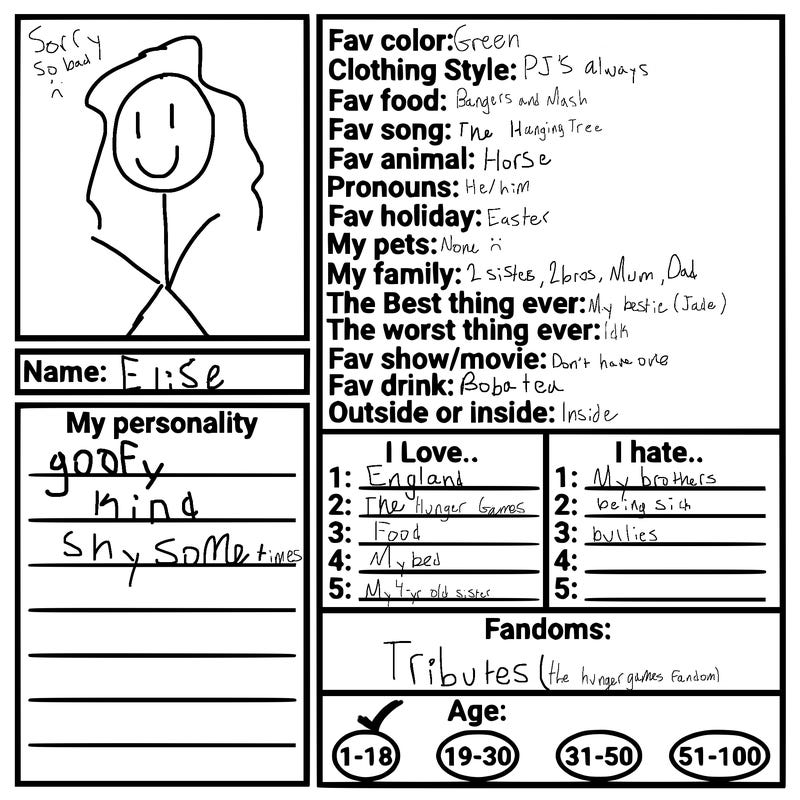 Sorry
so bad
:(
Name: Elise
My personality
goofy
kind
shy sometimes
Fav color: Green
Clothing Style: PJ'S always
Fav food: Bangers and Mash
Fav song: The Hanging Tree
Fav animal: Horse
Pronouns: He/him
Fav holiday: Easter
My pets: None :(
My family: 2 sisters, 2 bros, Mum, Dad
The Best thing ever: My bestie (Jade)
The worst thing ever: Idk
Fav show/movie: Don't have one
Fav drink: Boba tea
Outside or inside: Inside
I Love..
1: England
2: The Hunger Games
3: Food
4: My bed
5: My 4-yr old sister
I hate..
1: My brothers
2: being sick
3: bullies
4:
5:
Fandoms:
Tributes (the hunger games fandom)
Age:
1-18 19-30 31-50 51-100